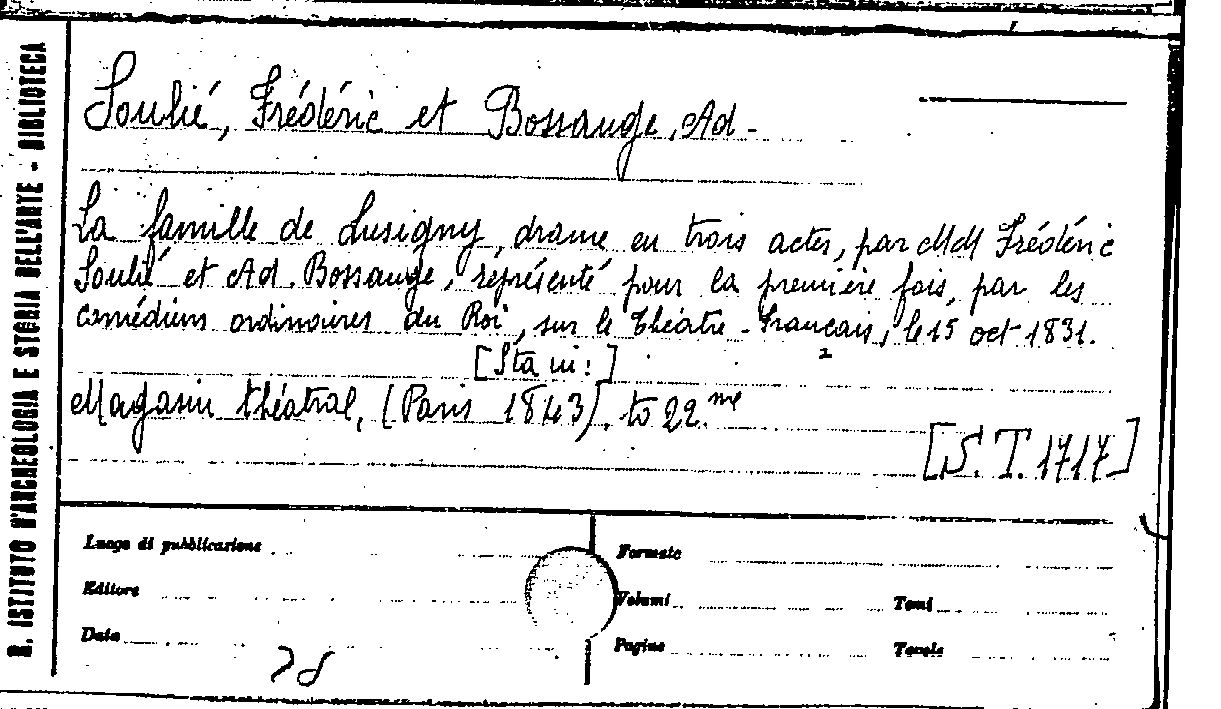 R. ISTITUTO D'ARCHEOLOGIA E STORIA DELL'ARTE - BIBLIOTECA
Soulié, Frédéric et Bossange, Ad -
La famille de Lusigny, drame en trois actes, par MM Frédéric
Soulié et Ad. Bossange, réprésenté pour la première fois, par les
comédiens ordinaires du Roi, sur le Théatre-Français, le 15 oct 1831.
[Sta in:]
Magasin théatral, (Paris 1843), to 22.me
[S.T. 1717]
Luogo di pubblicazione
Formato
Editore
Volumi
Tomi
Data
Pagine
Tavole